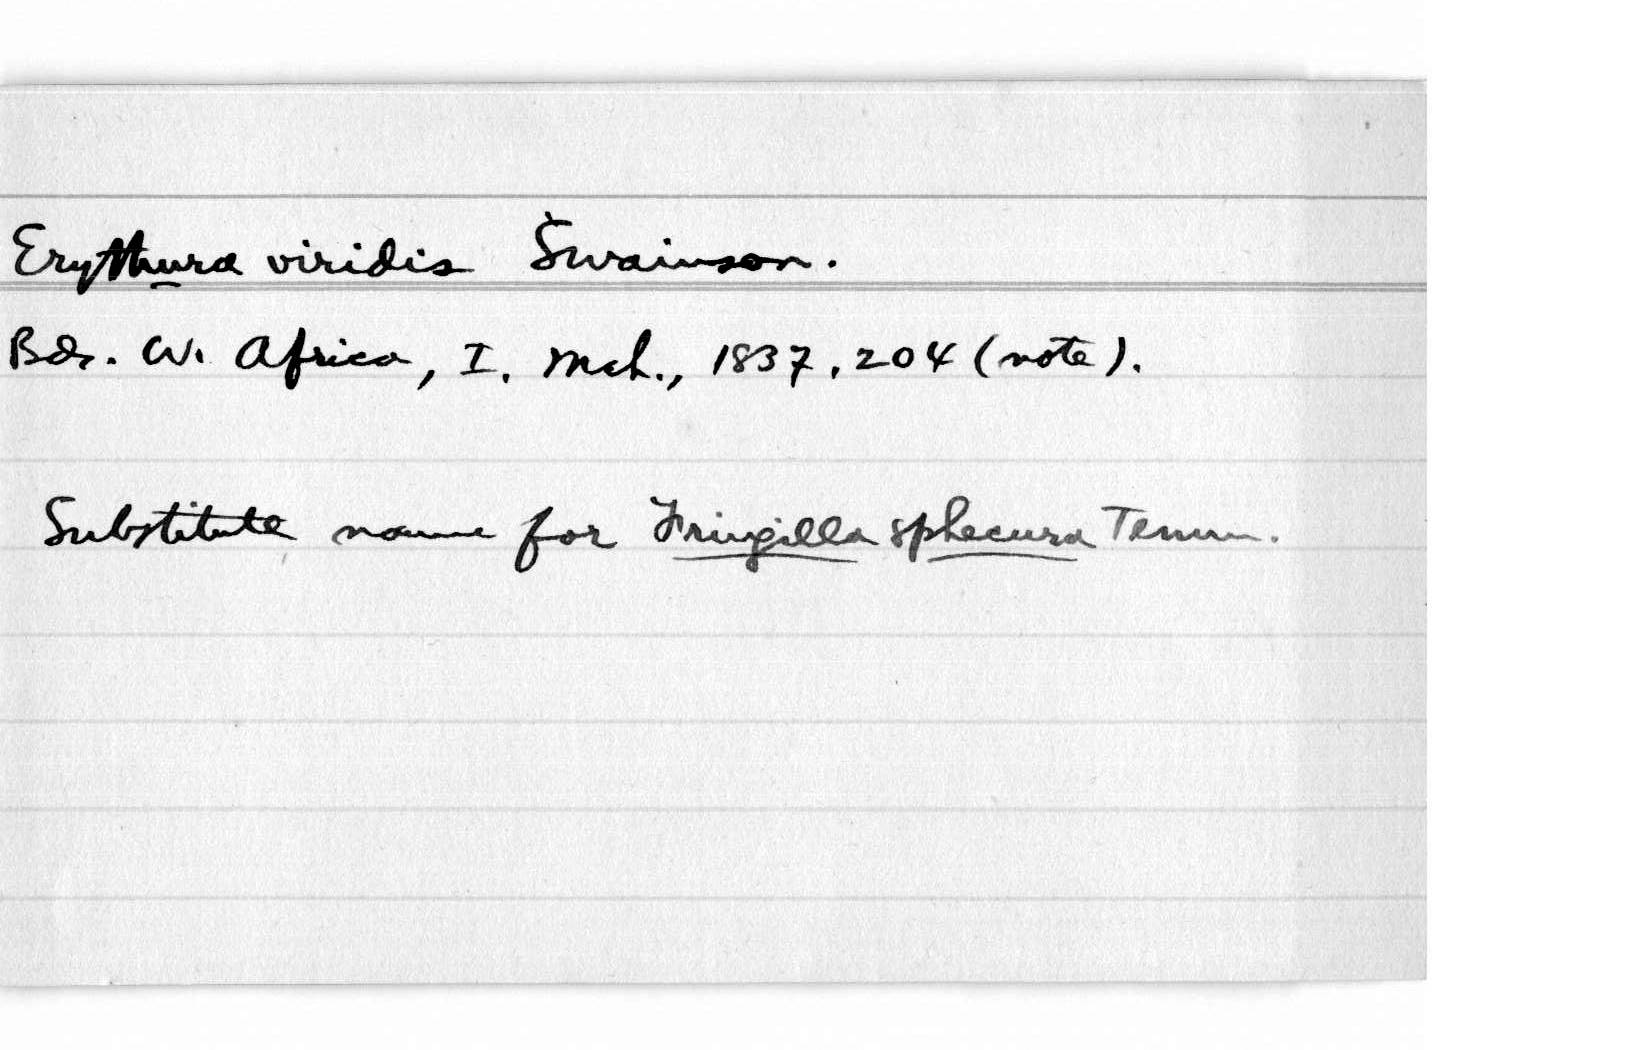 Erythura viridis Swainson.
Bds. W. Africa, I. Mch., 1837, 204 (note).
Substitute name for Fringilla sphecura Temm.